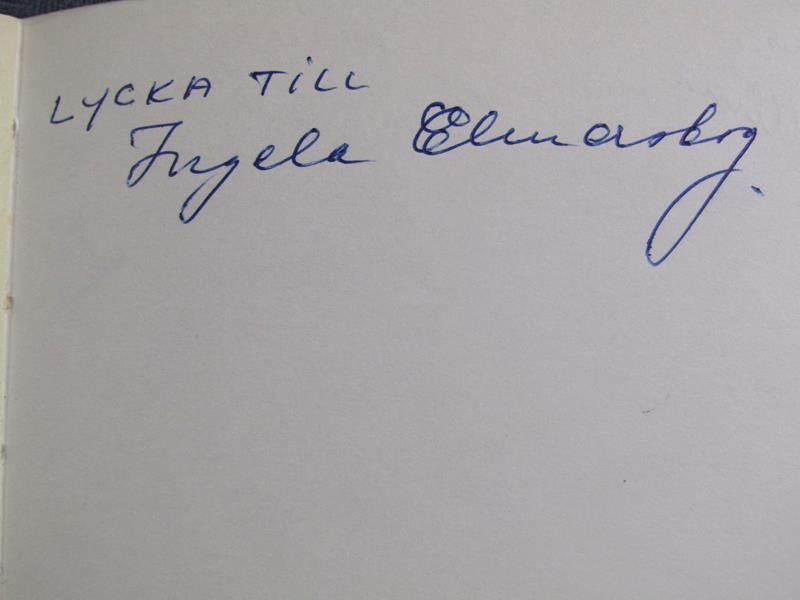 LYCKA TILL
Ingela Elmersborg